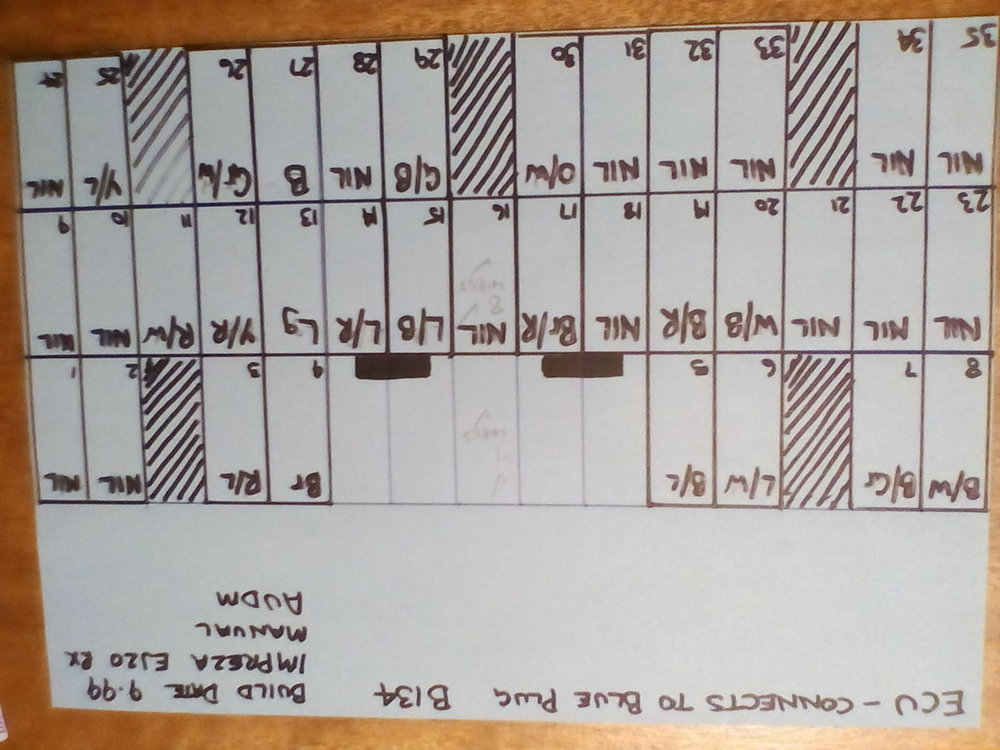 ECU - CONNECTS TO BLUE PLUG B134 BUILD DATE 9.99
IMPREZA EJ20 RX
MANUAL
AUDM
B/W B/G L/W B/L Br R/L NIL NIL
8 7 6 5 4 3 2 1
NIL NIL NIL W/B B/R NIL Br/R NIL L/B L/R Lg Y/R R/W NIL NIL
23 22 21 20 19 18 17 16 15 14 13 12 11 10 9
NIL NIL NIL NIL NIL O/W G/B NIL B G/W Y/L NIL
35 34 33 32 31 30 29 28 27 26 25 24